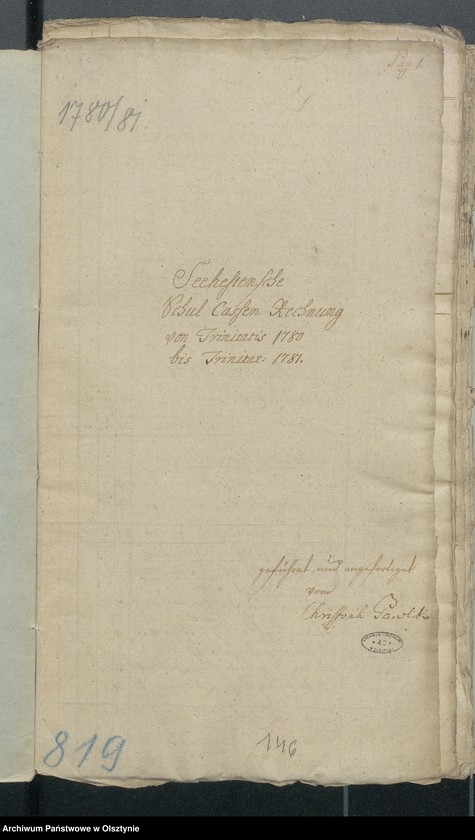 Pag. 1.
1780/81.
Seehestensche
Schul Cassen Rechnung
von Trinitatis 1780
bis Trinitat: 1781.
geführet und angefertiget
vom
Christoph
819
146
Archiwum Państwowe w Olsztynie